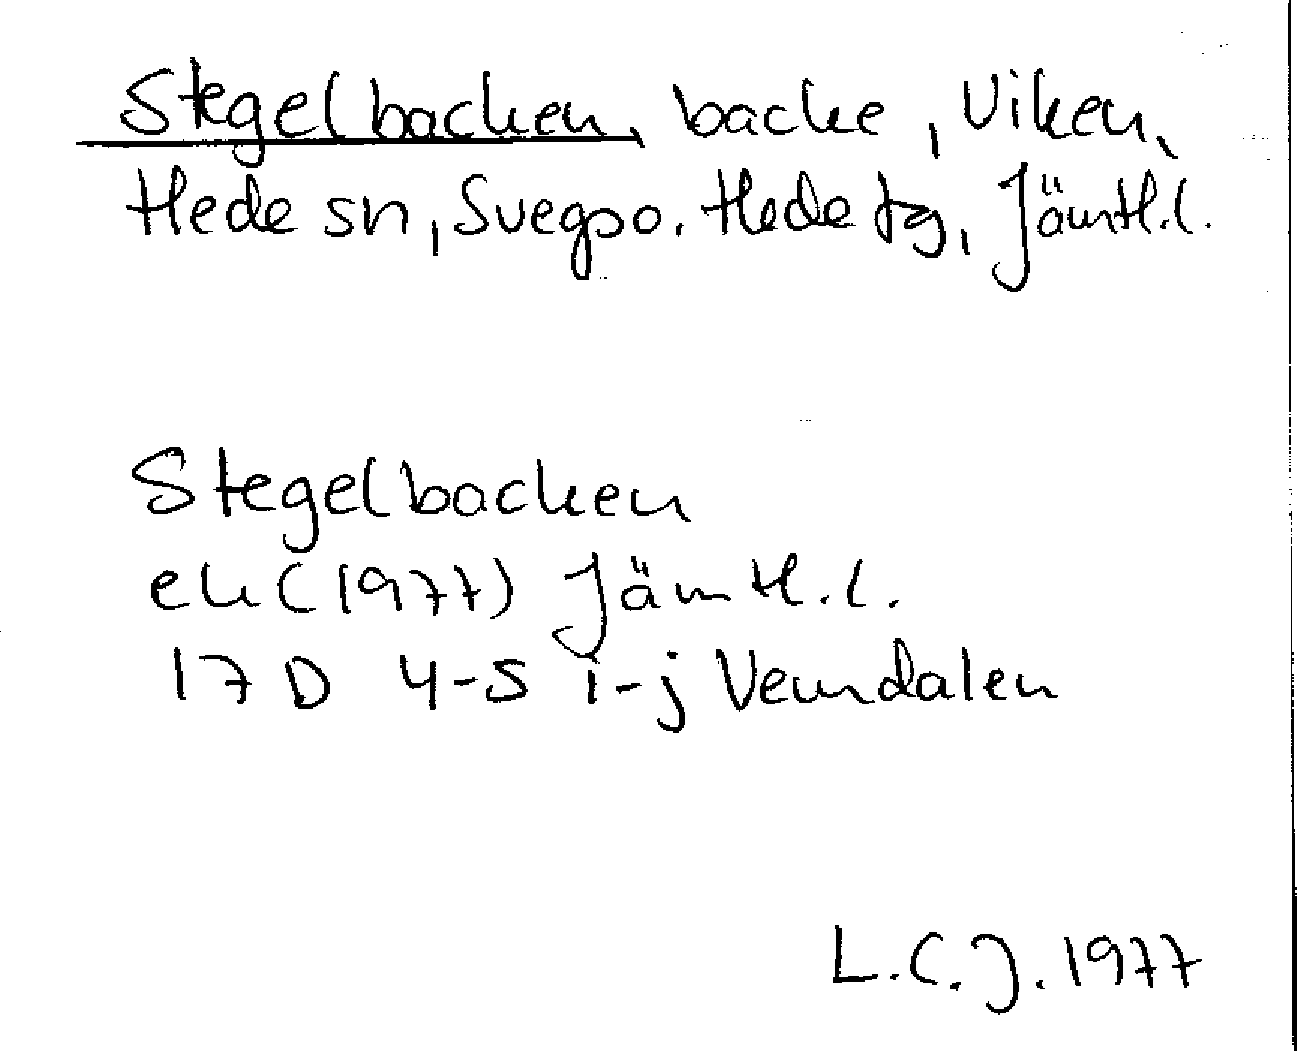 Stegelbacken, backe, Viken,
Hede sn, Svegs o. Hede tg, Jämtl.l.
Stegelbacken
ek (1977) Jämtl.l.
17 D 4-5 i-j Vemdalen
L.C.J. 1977